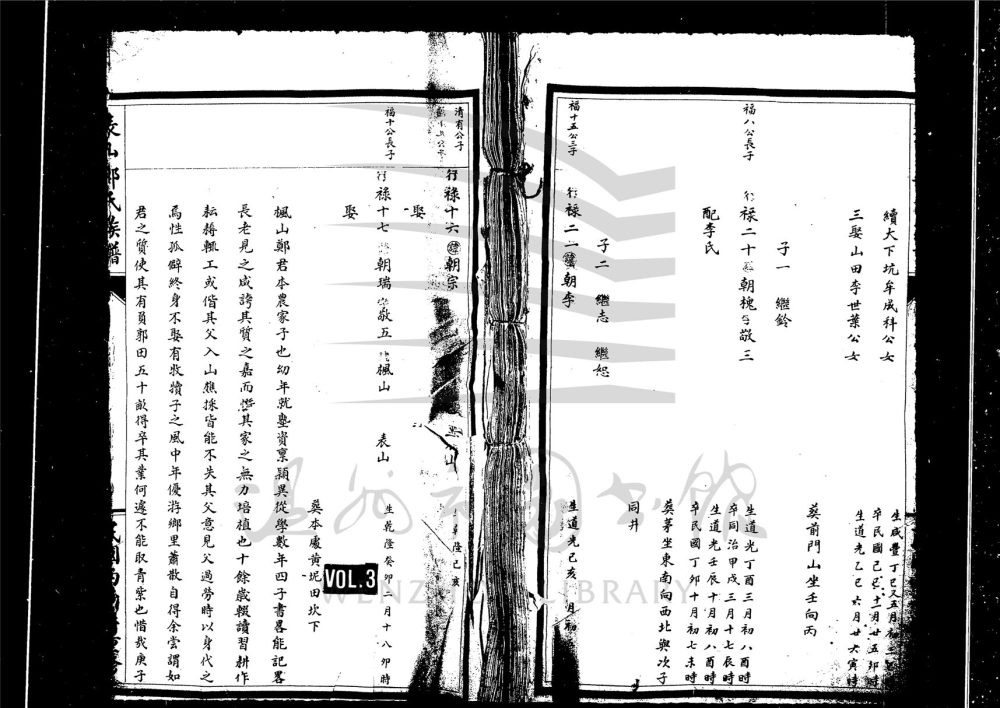 續大下坑牟成科公女
生咸豐丁巳又五月初
三娶山田李世葉公女
卒民國己巳十一月廿五卯時
生道光乙巳六月廿六寅時
子一 繼鈴
葬前門山坐壬向丙
福八公長子
行祿二十 諱朝槐 字敬三
生道光丁酉三月初八酉時
卒同治甲戌三月十七辰時
配李氏
生道光壬辰十月初八酉時
卒民國丁卯十月初七未時
葬茅坐東南向西北與次子
同井
子二 繼志 繼恕
福十五公三子
行祿二一 諱朝李
生道光己亥 月初
清有公子
行祿十六 諱朝宗
娶
福十公長子
行祿十七 朝瑞 字敬五 號楓山
表山
生乾隆癸卯二月十八卯時
娶
葬本處黃坭田坎下
楓山鄭君本農家子也幼年就塾資稟穎異從學數年四子書畧能記畧
長老見之咸誇其質之嘉而惜其家之無力培植也十餘歲輟讀習耕作
耘耨輒工或偕其父入山樵採皆能不失其父意見父過勞時以身代之
焉性孤僻終身不娶有牧犢子之風中年優游鄉里蕭散自得余嘗謂如
君之質使其有負郭田五十畝得卒其業何遽不能取青紫也惜哉庚子
表山鄭氏族譜
VOL.3
溫州圖書館
WENZHOU LIBRARY